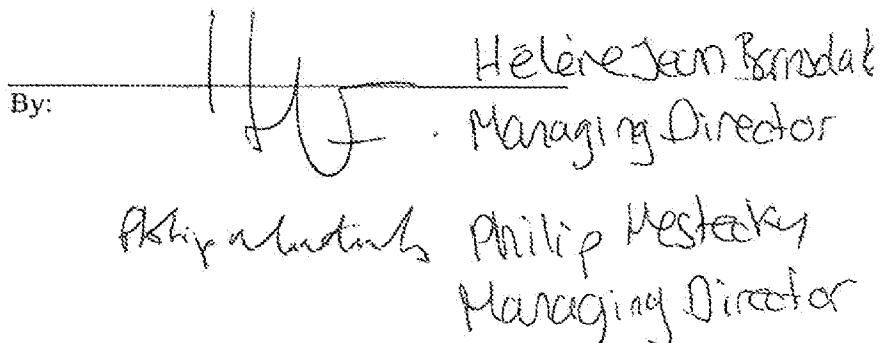 Hélène Jean
By:
Managing Director
Philip Mestecky
Managing Director